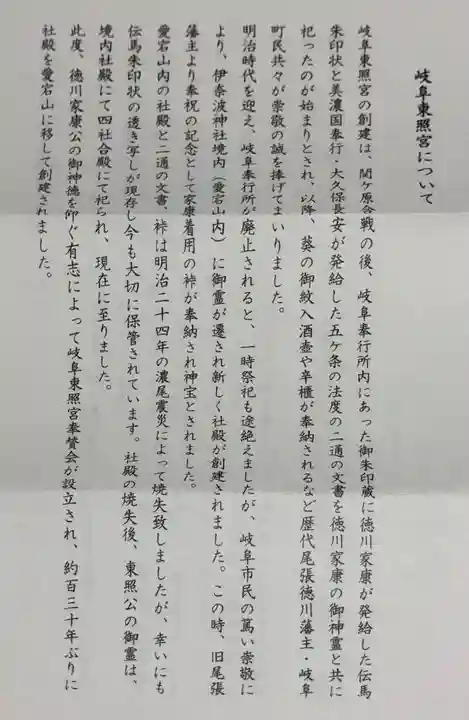 岐阜東照宮について
岐阜東照宮の創建は、関ケ原合戦の後、岐阜奉行所内にあった御朱印蔵に徳川家康が発給した伝馬
朱印状と美濃国奉行・大久保長安が発給した五ケ条の法度の二通の文書を徳川家康の御神霊と共に
祀ったのが始まりとされ、以降、葵の御紋入酒壺や辛櫃が奉納されるなど歴代尾張徳川藩主・岐阜
町民共々が崇敬の誠を捧げてまいりました。
明治時代を迎え、岐阜奉行所が廃止されると、一時祭祀も途絶えましたが、岐阜市民の篤い崇敬に
より、伊奈波神社境内（愛宕山内）に御霊が遷され新しく社殿が創建されました。この時、旧尾張
藩主より奉祝の記念として家康着用の裃が奉納され神宝とされました。
愛宕山内の社殿と二通の文書、裃は明治二十四年の濃尾震災によって焼失致しましたが、幸いにも
伝馬朱印状の透き写しが現存し今も大切に保管されています。社殿の焼失後、東照公の御霊は、
境内社殿にて四社合殿にて祀られ、現在に至りました。
此度、徳川家康公の御神徳を仰ぐ有志によって岐阜東照宮奉賛会が設立され、約百三十年ぶりに
社殿を愛宕山に移して創建されました。